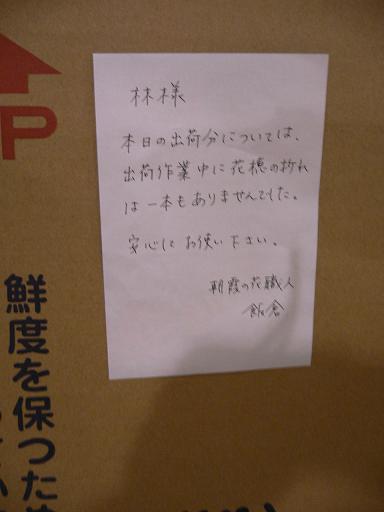 P
林様
本日の出荷分については、
出荷作業中に花穂の折れ
は一本もありませんでした。
安心してお使い下さい。
朝霞の花職人
飯倉
鮮度を保つた